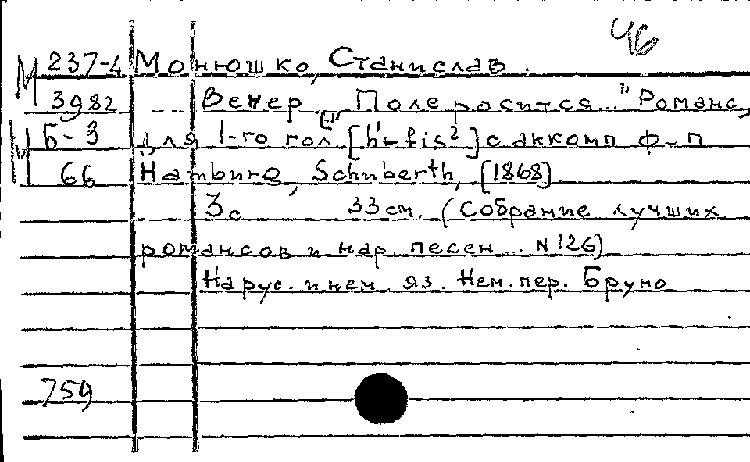 46
М 237-4 Монюшко, Станислав.
3982 Вечер. ["Поле росится..." Романс,
М Б-3 для 1-го гол. [h¹-fis²] с аккомп ф-п
66 Hamburg, Schuberth, [1868]
3с 33 см. (Собрание лучших
романсов и нар. песен... N 126)
На рус. и нем. яз. Нем. пер. Бруно
759